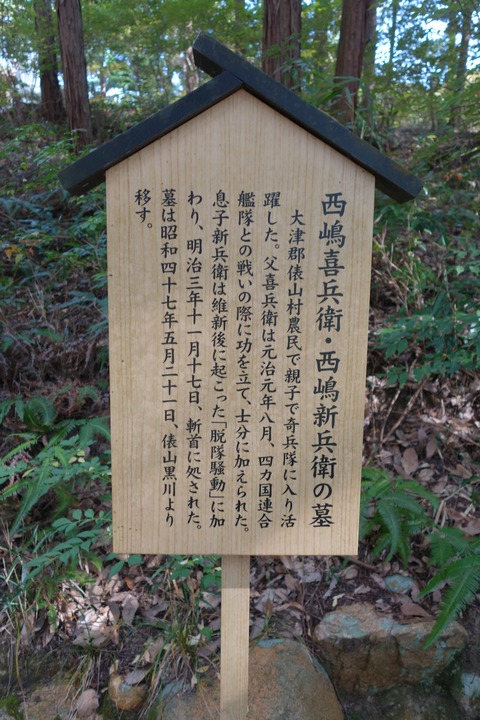 西嶋喜兵衛・西嶋新兵衛の墓
大津郡俵山村農民で親子で奇兵隊に入り活
躍した。父喜兵衛は元治元年八月、四カ国連合
艦隊との戦いの際に功を立て、士分に加えられた。
息子新兵衛は維新後に起こった「脱隊騒動」に加
わり、明治三年十一月十七日、斬首に処された。
墓は昭和四十七年五月二十一日、俵山黒川より
移す。